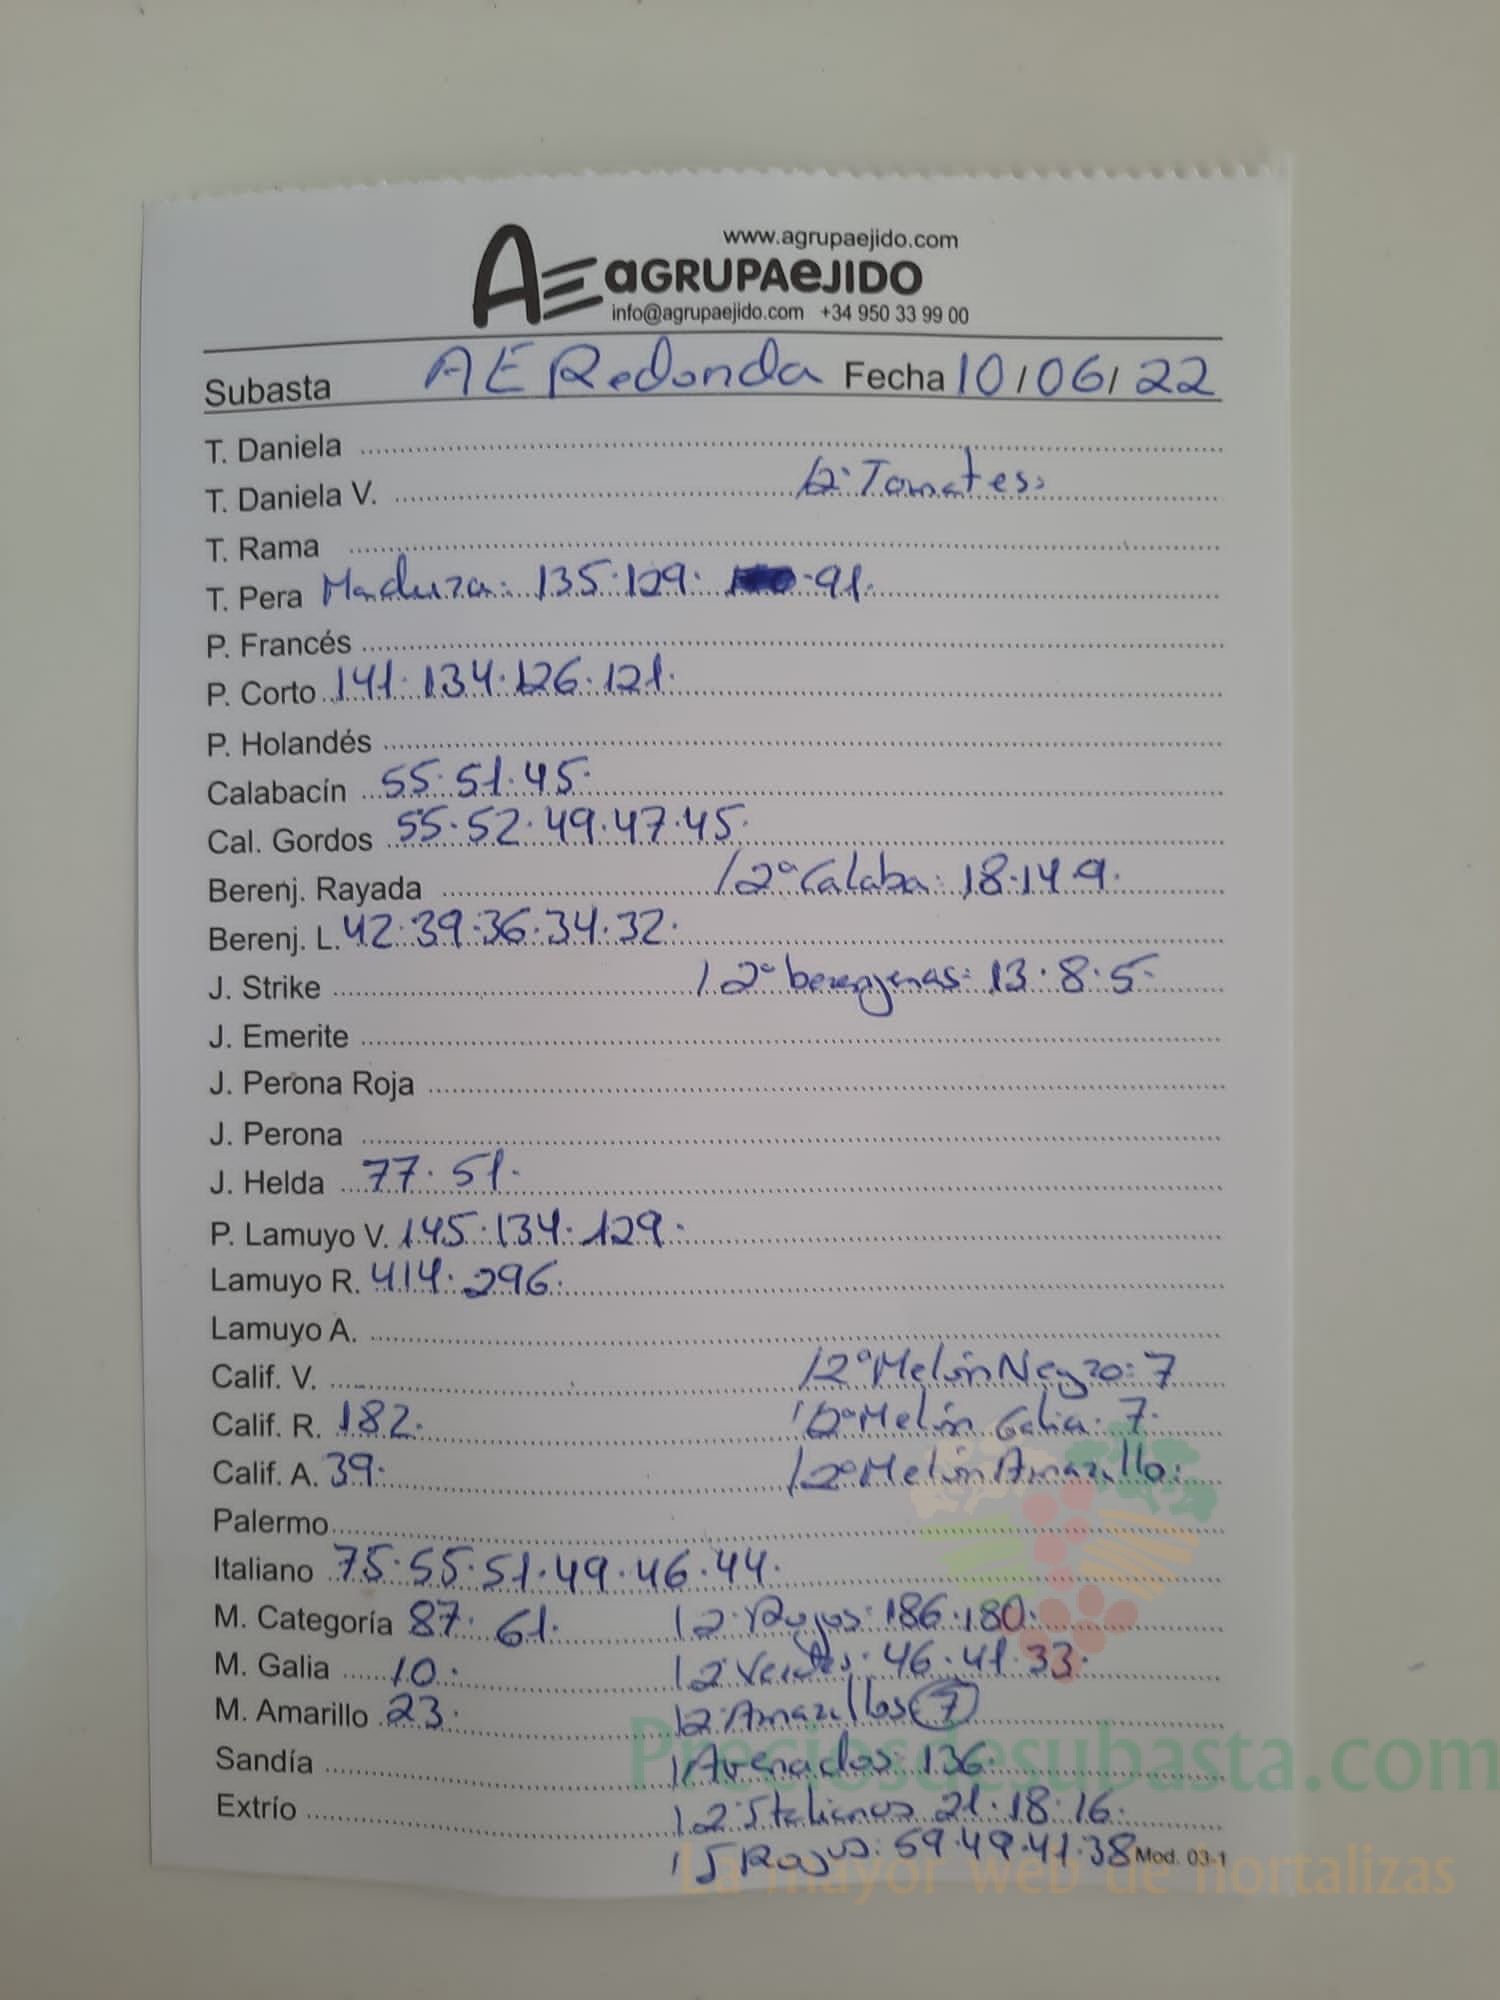 www.agrupaejido.com
AE aGRUPAeJIDO
info@agrupaejido.com +34 950 33 99 00
Subasta AE Redonda Fecha 10/06/22
T. Daniela
T. Daniela V. /2ª Tomates:
T. Rama
T. Pera Madura: 135·129· ·91·
P. Francés
P. Corto 141·134·126·121·
P. Holandés
Calabacín 55·51·45·
Cal. Gordos 55·52·49·47·45·
Berenj. Rayada /2ª Calaba: 18·14·9·
Berenj. L. 42·39·36·34·32·
J. Strike /2ª berenjenas: 13·8·5·
J. Emerite
J. Perona Roja
J. Perona
J. Helda 77·51·
P. Lamuyo V. 145·134·129·
Lamuyo R. 414·296·
Lamuyo A.
Calif. V. /2ª Melón Negro: 7
Calif. R. 182· /2ª Melón Galia: 7·
Calif. A. 39· /2ª Melón Amarillo:
Palermo
Italiano 75·55·51·49·46·44·
M. Categoría 87·61· /2ª Rojos: 186·180·
M. Galia 10· /2ª Verdes: 46·41·33·
M. Amarillo 23· /2ª Amarillos 7
Sandía /Asenados: 136·
Extrío /2ª Italianos 21·18·16·
Rojos: 59·49·41·38 Mod. 03-1
Preciosdesubasta.com
La mayor web de hortalizas